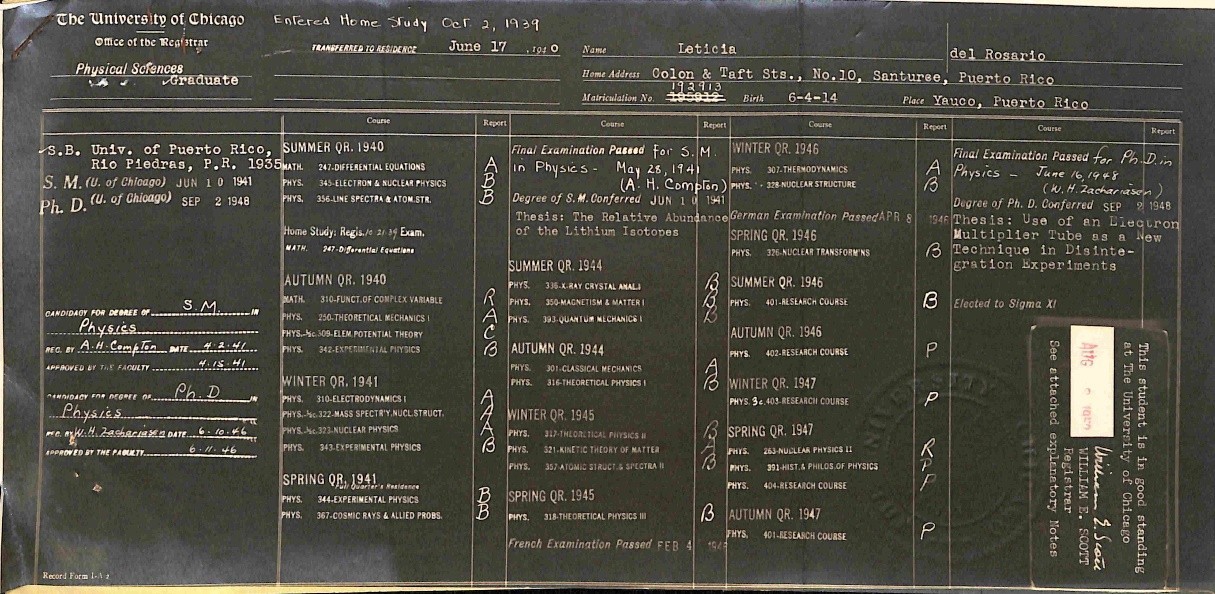 The University of Chicago
Office of the Registrar
Physical Sciences
Graduate
Entered Home Study Oct. 2, 1939
TRANSFERRED TO RESIDENCE June 17, 1940
Name Leticia del Rosario
Home Address Colon & Taft Sts., No.10, Santurce, Puerto Rico
192913
Matriculation No. 195912 Birth 6-4-14 Place Yauco, Puerto Rico
S.B. Univ. of Puerto Rico,
Rio Piedras, P.R. 1935
S. M. (U. of Chicago) JUN 10 1941
Ph. D. (U. of Chicago) SEP 2 1948
CANDIDACY FOR DEGREE OF S.M. IN
Physics
REC. BY A.H. Compton DATE 4-2-41
APPROVED BY THE FACULTY 4-15-41
CANDIDACY FOR DEGREE OF Ph.D IN
Physics
REC. BY W.H. Zachariasen DATE 6-10-46
APPROVED BY THE FACULTY 6-11-46
Record Form I-A 2
Course Report
SUMMER QR. 1940
MATH. 247-DIFFERENTIAL EQUATIONS A
PHYS. 345-ELECTRON & NUCLEAR PHYSICS B
PHYS. 356-LINE SPECTRA & ATOM.STR. B
Home Study: Regis. 10-21-39 Exam.
MATH. 247-Differential Equations
AUTUMN QR. 1940
MATH. 310-FUNCT.OF COMPLEX VARIABLE R
PHYS. 250-THEORETICAL MECHANICS I A
PHYS.-½c.309-ELEM.POTENTIAL THEORY C
PHYS. 342-EXPERIMENTAL PHYSICS B
WINTER QR. 1941
PHYS. 310-ELECTRODYNAMICS I A
PHYS.-½c.322-MASS SPECTRY.NUCL.STRUCT. A
PHYS.-½c.323-NUCLEAR PHYSICS A
PHYS. 343-EXPERIMENTAL PHYSICS B
SPRING QR. 1941
Full Quarter's Residence
PHYS. 344-EXPERIMENTAL PHYSICS B
PHYS. 367-COSMIC RAYS & ALLIED PROBS. B
Course Report
Final Examination Passed for S.M.
in Physics - May 28, 1941
(A. H. Compton)
Degree of S.M. Conferred JUN 10 1941
Thesis: The Relative Abundance
of the Lithium Isotopes
SUMMER QR. 1944
PHYS. 336-X-RAY CRYSTAL ANAL.I B
PHYS. 350-MAGNETISM & MATTER I B
PHYS. 393-QUANTUM MECHANICS I B
AUTUMN QR. 1944
PHYS. 301-CLASSICAL MECHANICS A
PHYS. 316-THEORETICAL PHYSICS I B
WINTER QR. 1945
PHYS. 317-THEORETICAL PHYSICS II B
PHYS. 321-KINETIC THEORY OF MATTER A
PHYS. 357-ATOMIC STRUCT.& SPECTRA II B
SPRING QR. 1945
PHYS. 318-THEORETICAL PHYSICS III B
French Examination Passed FEB 4
Course Report
WINTER QR. 1946
PHYS. 307-THERMODYNAMICS A
PHYS. 328-NUCLEAR STRUCTURE B
German Examination Passed APR 8 1946
SPRING QR. 1946
PHYS. 326-NUCLEAR TRANSFORM'NS B
SUMMER QR. 1946
PHYS. 401-RESEARCH COURSE B
AUTUMN QR. 1946
PHYS. 402-RESEARCH COURSE P
WINTER QR. 1947
PHYS. 3c.403-RESEARCH COURSE P
SPRING QR. 1947
PHYS. 263-NUCLEAR PHYSICS II R
PHYS. 391-HIST.& PHILOS.OF PHYSICS P
PHYS. 404-RESEARCH COURSE P
AUTUMN QR. 1947
PHYS. 401-RESEARCH COURSE P
Course Report
Final Examination Passed for Ph.D. in
Physics - June 16, 1948
(W.H. Zachariasen)
Degree of Ph. D. Conferred SEP 2 1948
Thesis: Use of an Electron
Multiplier Tube as a New
Technique in Disinte-
gration Experiments
Elected to Sigma XI
This student is in good standing
at The University of Chicago
AUG
William E. Scott
WILLIAM E. SCOTT
Registrar
See attached explanatory Notes